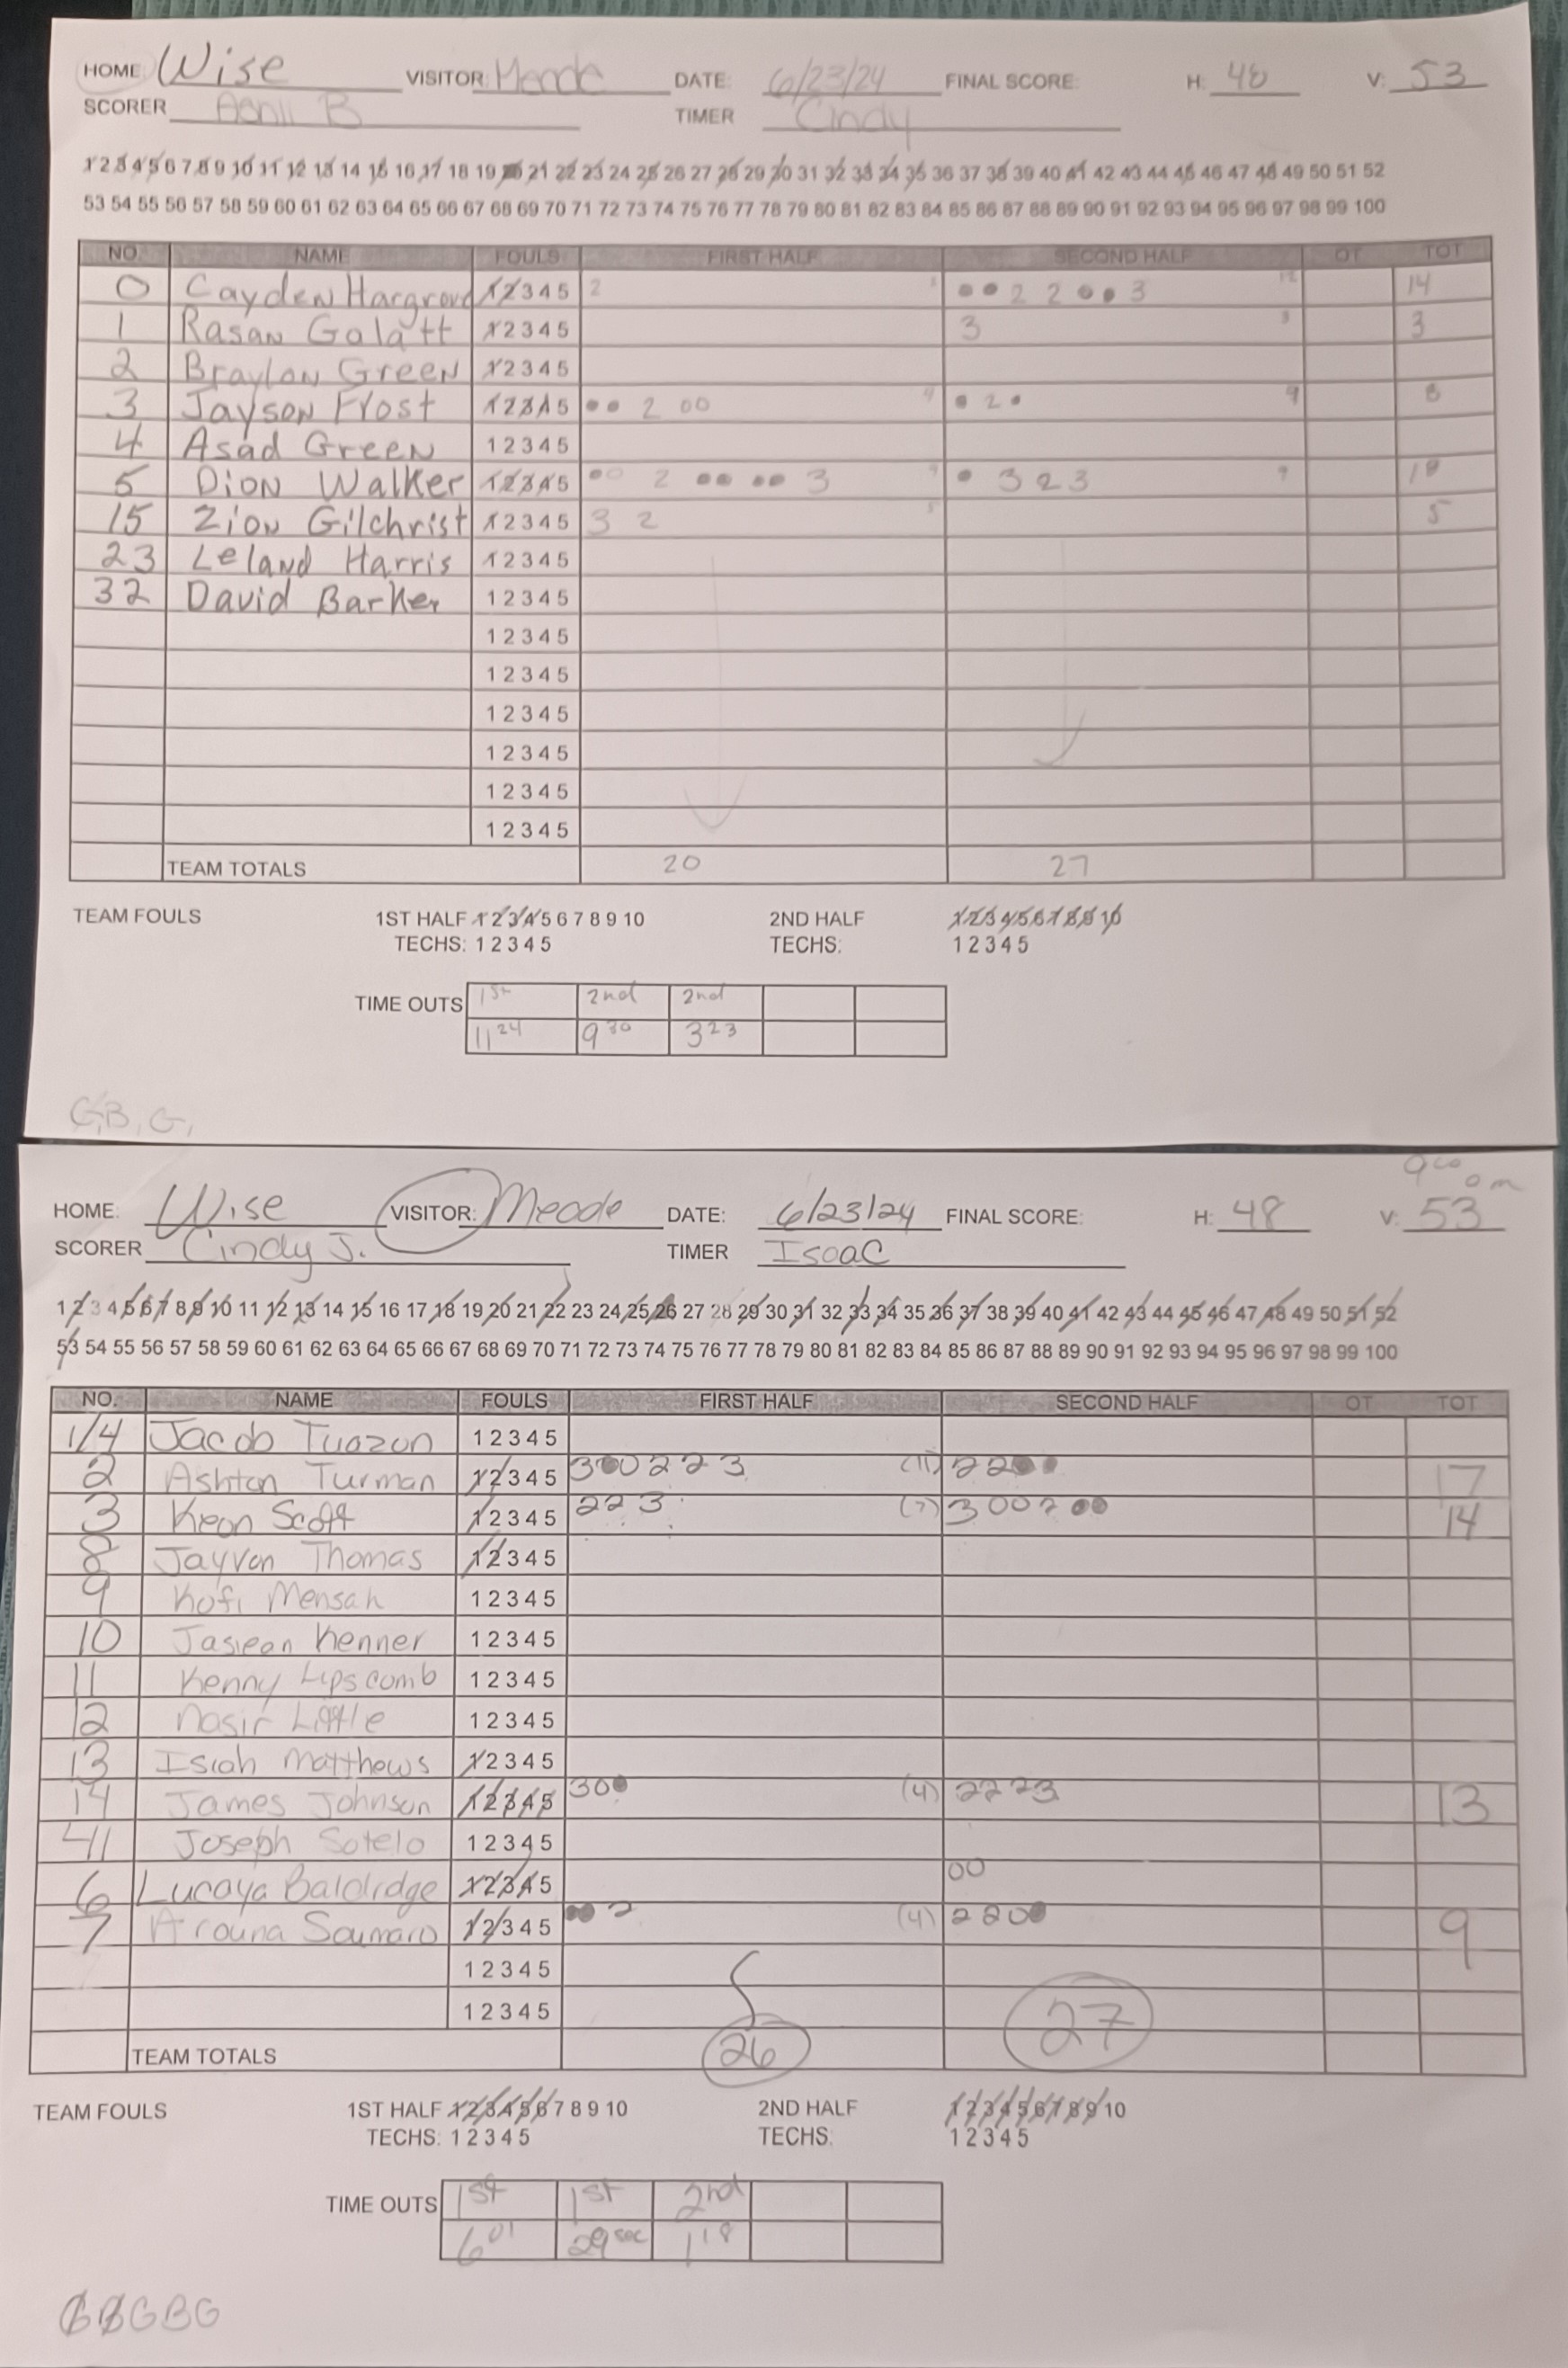 HOME: Wise VISITOR: Meade DATE: 6/23/24 FINAL SCORE: H: 48 V: 53
SCORER April B TIMER Cindy
1 2 3 4 5 6 7 8 9 10 11 12 13 14 15 16 17 18 19 20 21 22 23 24 25 26 27 28 29 30 31 32 33 34 35 36 37 38 39 40 41 42 43 44 45 46 47 48 49 50 51 52
53 54 55 56 57 58 59 60 61 62 63 64 65 66 67 68 69 70 71 72 73 74 75 76 77 78 79 80 81 82 83 84 85 86 87 88 89 90 91 92 93 94 95 96 97 98 99 100
NO. NAME FOULS FIRST HALF SECOND HALF OT TOT
0 Cayden Hargrove 1 2 3 4 5 2 ●● 2 2 ●● 3 12 14
1 Rasan Galatt 1 2 3 4 5 3 3 3
2 Braylon Green 1 2 3 4 5
3 Jayson Frost 1 2 3 4 5 ●● 2 00 4 ● 2 ● 4 8
4 Asad Green 1 2 3 4 5
5 Dion Walker 1 2 3 4 5 ●0 2 ●● ●● 3 9 ● 3 2 3 9 18
15 Zion Gilchrist 1 2 3 4 5 3 2 5 5
23 Leland Harris 1 2 3 4 5
32 David Barker 1 2 3 4 5
1 2 3 4 5
1 2 3 4 5
1 2 3 4 5
1 2 3 4 5
1 2 3 4 5
1 2 3 4 5
TEAM TOTALS 20 27
TEAM FOULS 1ST HALF 1 2 3 4 5 6 7 8 9 10 2ND HALF 1 2 3 4 5 6 7 8 9 10
TECHS: 1 2 3 4 5 TECHS: 1 2 3 4 5
TIME OUTS 1st 2nd 2nd
11 24 9 30 3 23
G, B, G,
9 00 am
HOME: Wise VISITOR: Meade DATE: 6/23/24 FINAL SCORE: H: 48 V: 53
SCORER Cindy J. TIMER Isaac
1 2 3 4 5 6 7 8 9 10 11 12 13 14 15 16 17 18 19 20 21 22 23 24 25 26 27 28 29 30 31 32 33 34 35 36 37 38 39 40 41 42 43 44 45 46 47 48 49 50 51 52
53 54 55 56 57 58 59 60 61 62 63 64 65 66 67 68 69 70 71 72 73 74 75 76 77 78 79 80 81 82 83 84 85 86 87 88 89 90 91 92 93 94 95 96 97 98 99 100
NO. NAME FOULS FIRST HALF SECOND HALF OT TOT
1/4 Jacob Tuazon 1 2 3 4 5
2 Ashton Turman 1 2 3 4 5 3●0 2 2 3 (11) 2 2 ●● 17
3 Keon Scott 1 2 3 4 5 2 2 3 (7) 3 0 0 2 ●● 14
8 Jayvon Thomas 1 2 3 4 5
9 Kofi Mensah 1 2 3 4 5
10 Jasiean Kenner 1 2 3 4 5
11 Kenny Lipscomb 1 2 3 4 5
12 Nasir Little 1 2 3 4 5
13 Isiah Matthews 1 2 3 4 5
14 James Johnson 1 2 3 4 5 3 0 ● (4) 2 2 2 3 13
41 Joseph Sotelo 1 2 3 4 5
6 Lucaya Baldridge 1 2 3 4 5 00
7 Arouna Soumaro 1 2 3 4 5 ●● 2 (4) 2 2 0 ● 9
1 2 3 4 5
1 2 3 4 5
TEAM TOTALS 26 27
TEAM FOULS 1ST HALF 1 2 3 4 5 6 7 8 9 10 2ND HALF 1 2 3 4 5 6 7 8 9 10
TECHS: 1 2 3 4 5 TECHS: 1 2 3 4 5
TIME OUTS 1st 1st 2nd
6 01 29 sec 1 18
G B G B G